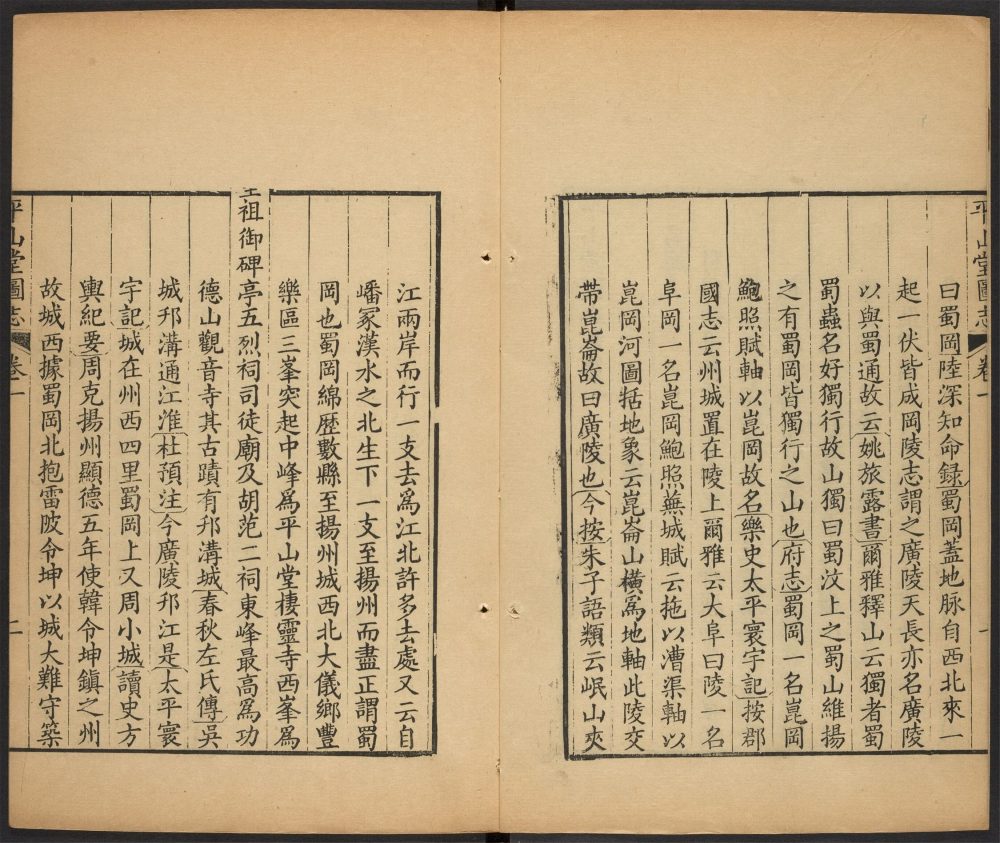 平山堂圖志 卷一 一
曰蜀岡陸深知命録蜀岡蓋地脉自西北來一
起一伏皆成岡陵志謂之廣陵天長亦名廣陵
以與蜀通故云姚旅露書爾雅釋山云獨者蜀
蜀蟲名好獨行故山獨曰蜀汶上之蜀山維揚
之有蜀岡皆獨行之山也府志蜀岡一名崑岡
鮑照賦軸以崑岡故名樂史太平寰宇記按郡
國志云州城置在陵上爾雅云大阜曰陵一名
阜岡一名崑岡鮑照蕪城賦云拖以漕渠軸以
崑岡河圖括地象云崑崙山橫爲地軸此陵交
帶崑崙故曰廣陵也今按朱子語類云岷山夾
江兩岸而行一支去爲江北許多去處又云自
嶓冢漢水之北生下一支至揚州而盡正謂蜀
岡也蜀岡綿歷數縣至揚州城西北大儀鄉豐
樂區三峯突起中峰爲平山堂棲靈寺西峯爲
聖祖御碑亭五烈祠司徒廟及胡范二祠東峰最高爲功
德山觀音寺其古蹟有邗溝城春秋左氏傳吳
城邗溝通江淮杜預注今廣陵邗江是太平寰
宇記城在州西四里蜀岡上又周小城讀史方
輿紀要周克揚州顯德五年使韓令坤鎮之州
故城西據蜀岡北抱雷陂令坤以城大難守築
平山堂圖志 卷一 二